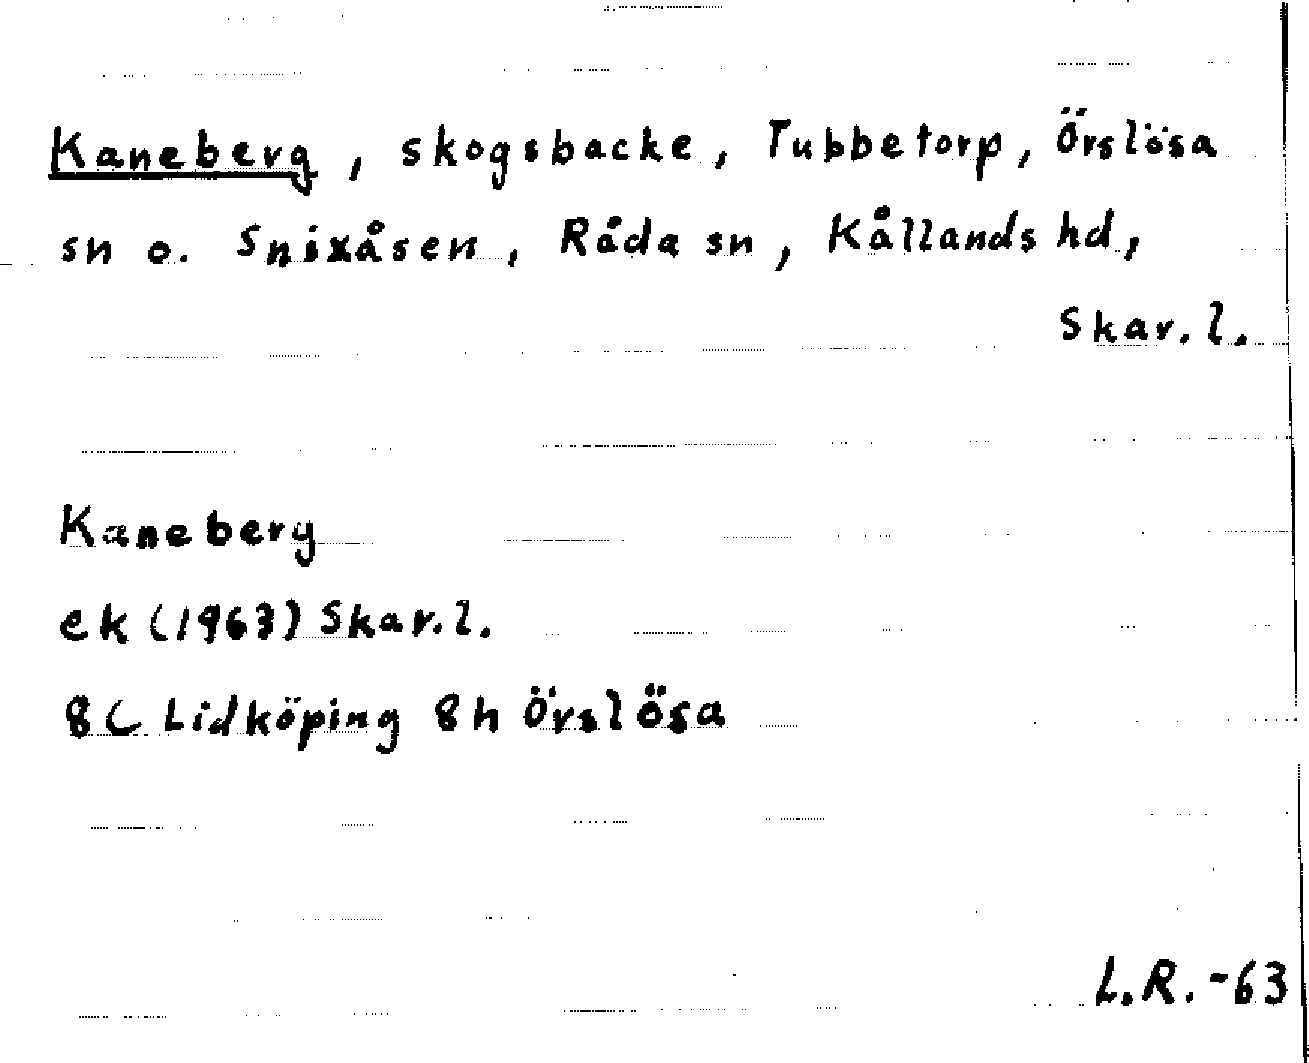 Kaneberg, skogsbacke, Tubbetorp, Örslösa
sn o. Snixåsen, Råda sn, Kållands hd,
Skar. l.
Kaneberg
ek (1963) Skar. l.
8C Lidköping 8h Örslösa
L.R. -63